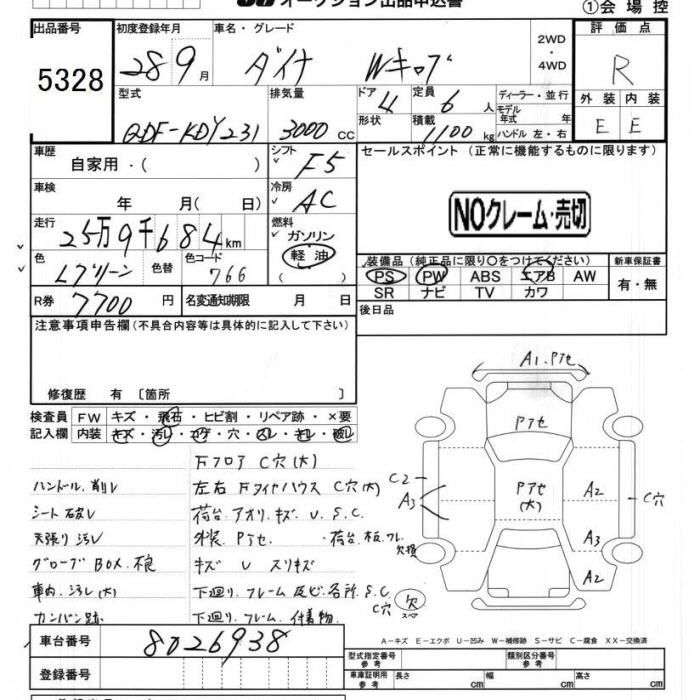 オークション出品申込書
①会場控
出品番号 5328
初度登録年月 28 9月
車名・グレード ダイナ Wキャブ
2WD・4WD
評価点 R
外装 E 内装 E
型式 QDF-KDY231
排気量 3000cc
ドア形状 4
定員 6人
積載 1100kg
ディーラー・並行
モデル年式 年
ハンドル 左・右
車歴 自家用・( )
シフト F5
セールスポイント(正常に機能するものに限ります)
車検 年 月( 日)
冷房 AC
NOクレーム・売切
走行 25万9千684km
燃料 ガソリン 軽油 ( )
色 Lグリーン 色替 色コード 766
装備品(純正品に限り○をつけてください)
新車保証書 有・無
PS PW ABS エアB AW
SR ナビ TV カワ
R券 7700円
名変通知期限 月 日
後日品
注意事項申告欄(不具合内容等は具体的に記入して下さい)
修復歴 有 〔箇所 〕
検査員記入欄
FW キズ・飛石・ヒビ割・リペア跡・×要
内装 キズ・汚レ・コゲ・穴・スレ・キレ・破レ
下フロア C穴(大)
ハンドル、削レ 左右 FタイヤハウスC穴(大)
シート破レ 荷台.アオリ.キズ U.S.C.
天張り汚レ 外装.Pアセ.荷台.板.ワレ.欠損
グローブBOX.槍 キズ U スリキズ
車内.汚レ(大) 下廻り.フレーム 及ビ.各所.S.C. C穴
カンバン跡 下廻り.フレーム.付着物
A1.Pアセ
Pアセ
C2
A3
Pアセ(大)
A2
C穴
A3
A2
欠
スペア
A-キズ E-エクボ U-凹み W-補修跡 S-サビ C-腐食 XX-交換済
車台番号 8026938
型式指定番号 参考
類別区分番号 参考
登録番号
車庫証明用 参考 長さ cm 幅 cm 高さ cm